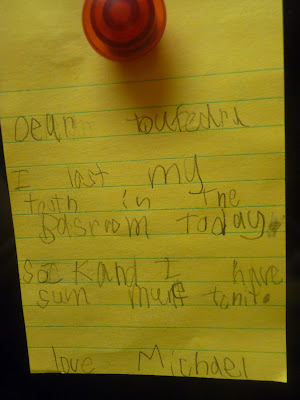 Dear toufedru
I lost my
toth in the
Basroom today
So cKand I have
sum mune tonit.
love Michael